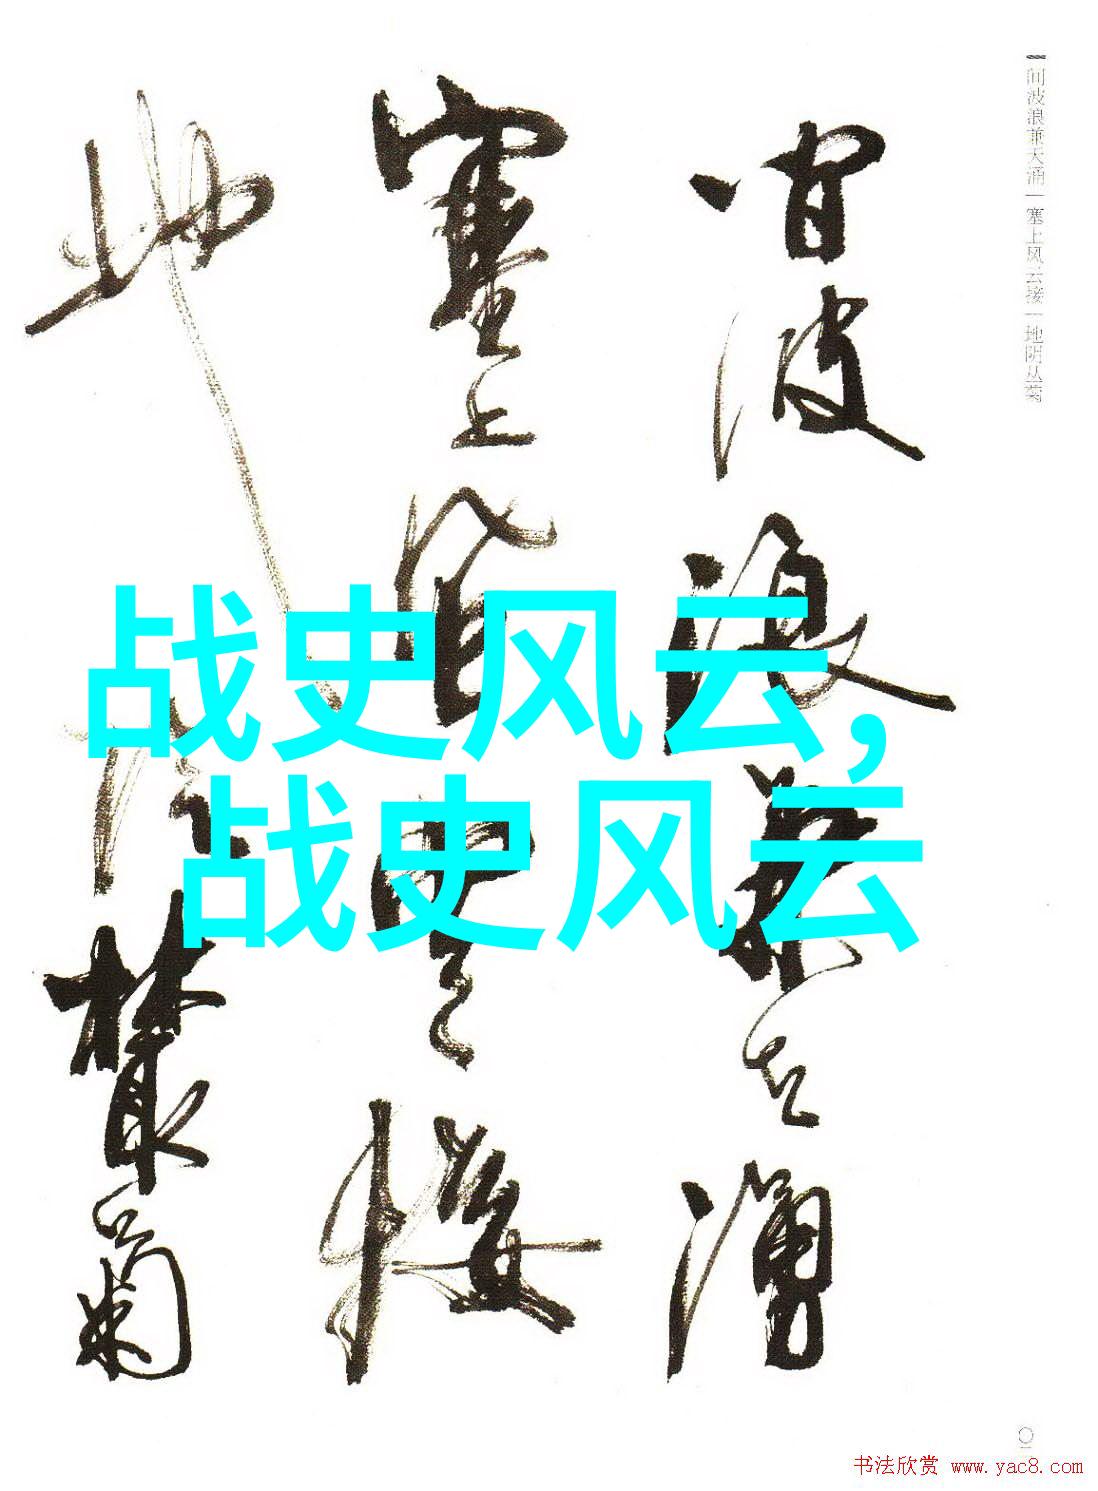 间波浪兼天涌 | 塞上风云接 | 地阴丛菊
间波浪兼天涌
塞上风云接
地阴丛菊
战史风云,
战史风云
书法欣赏 www.yac8.com